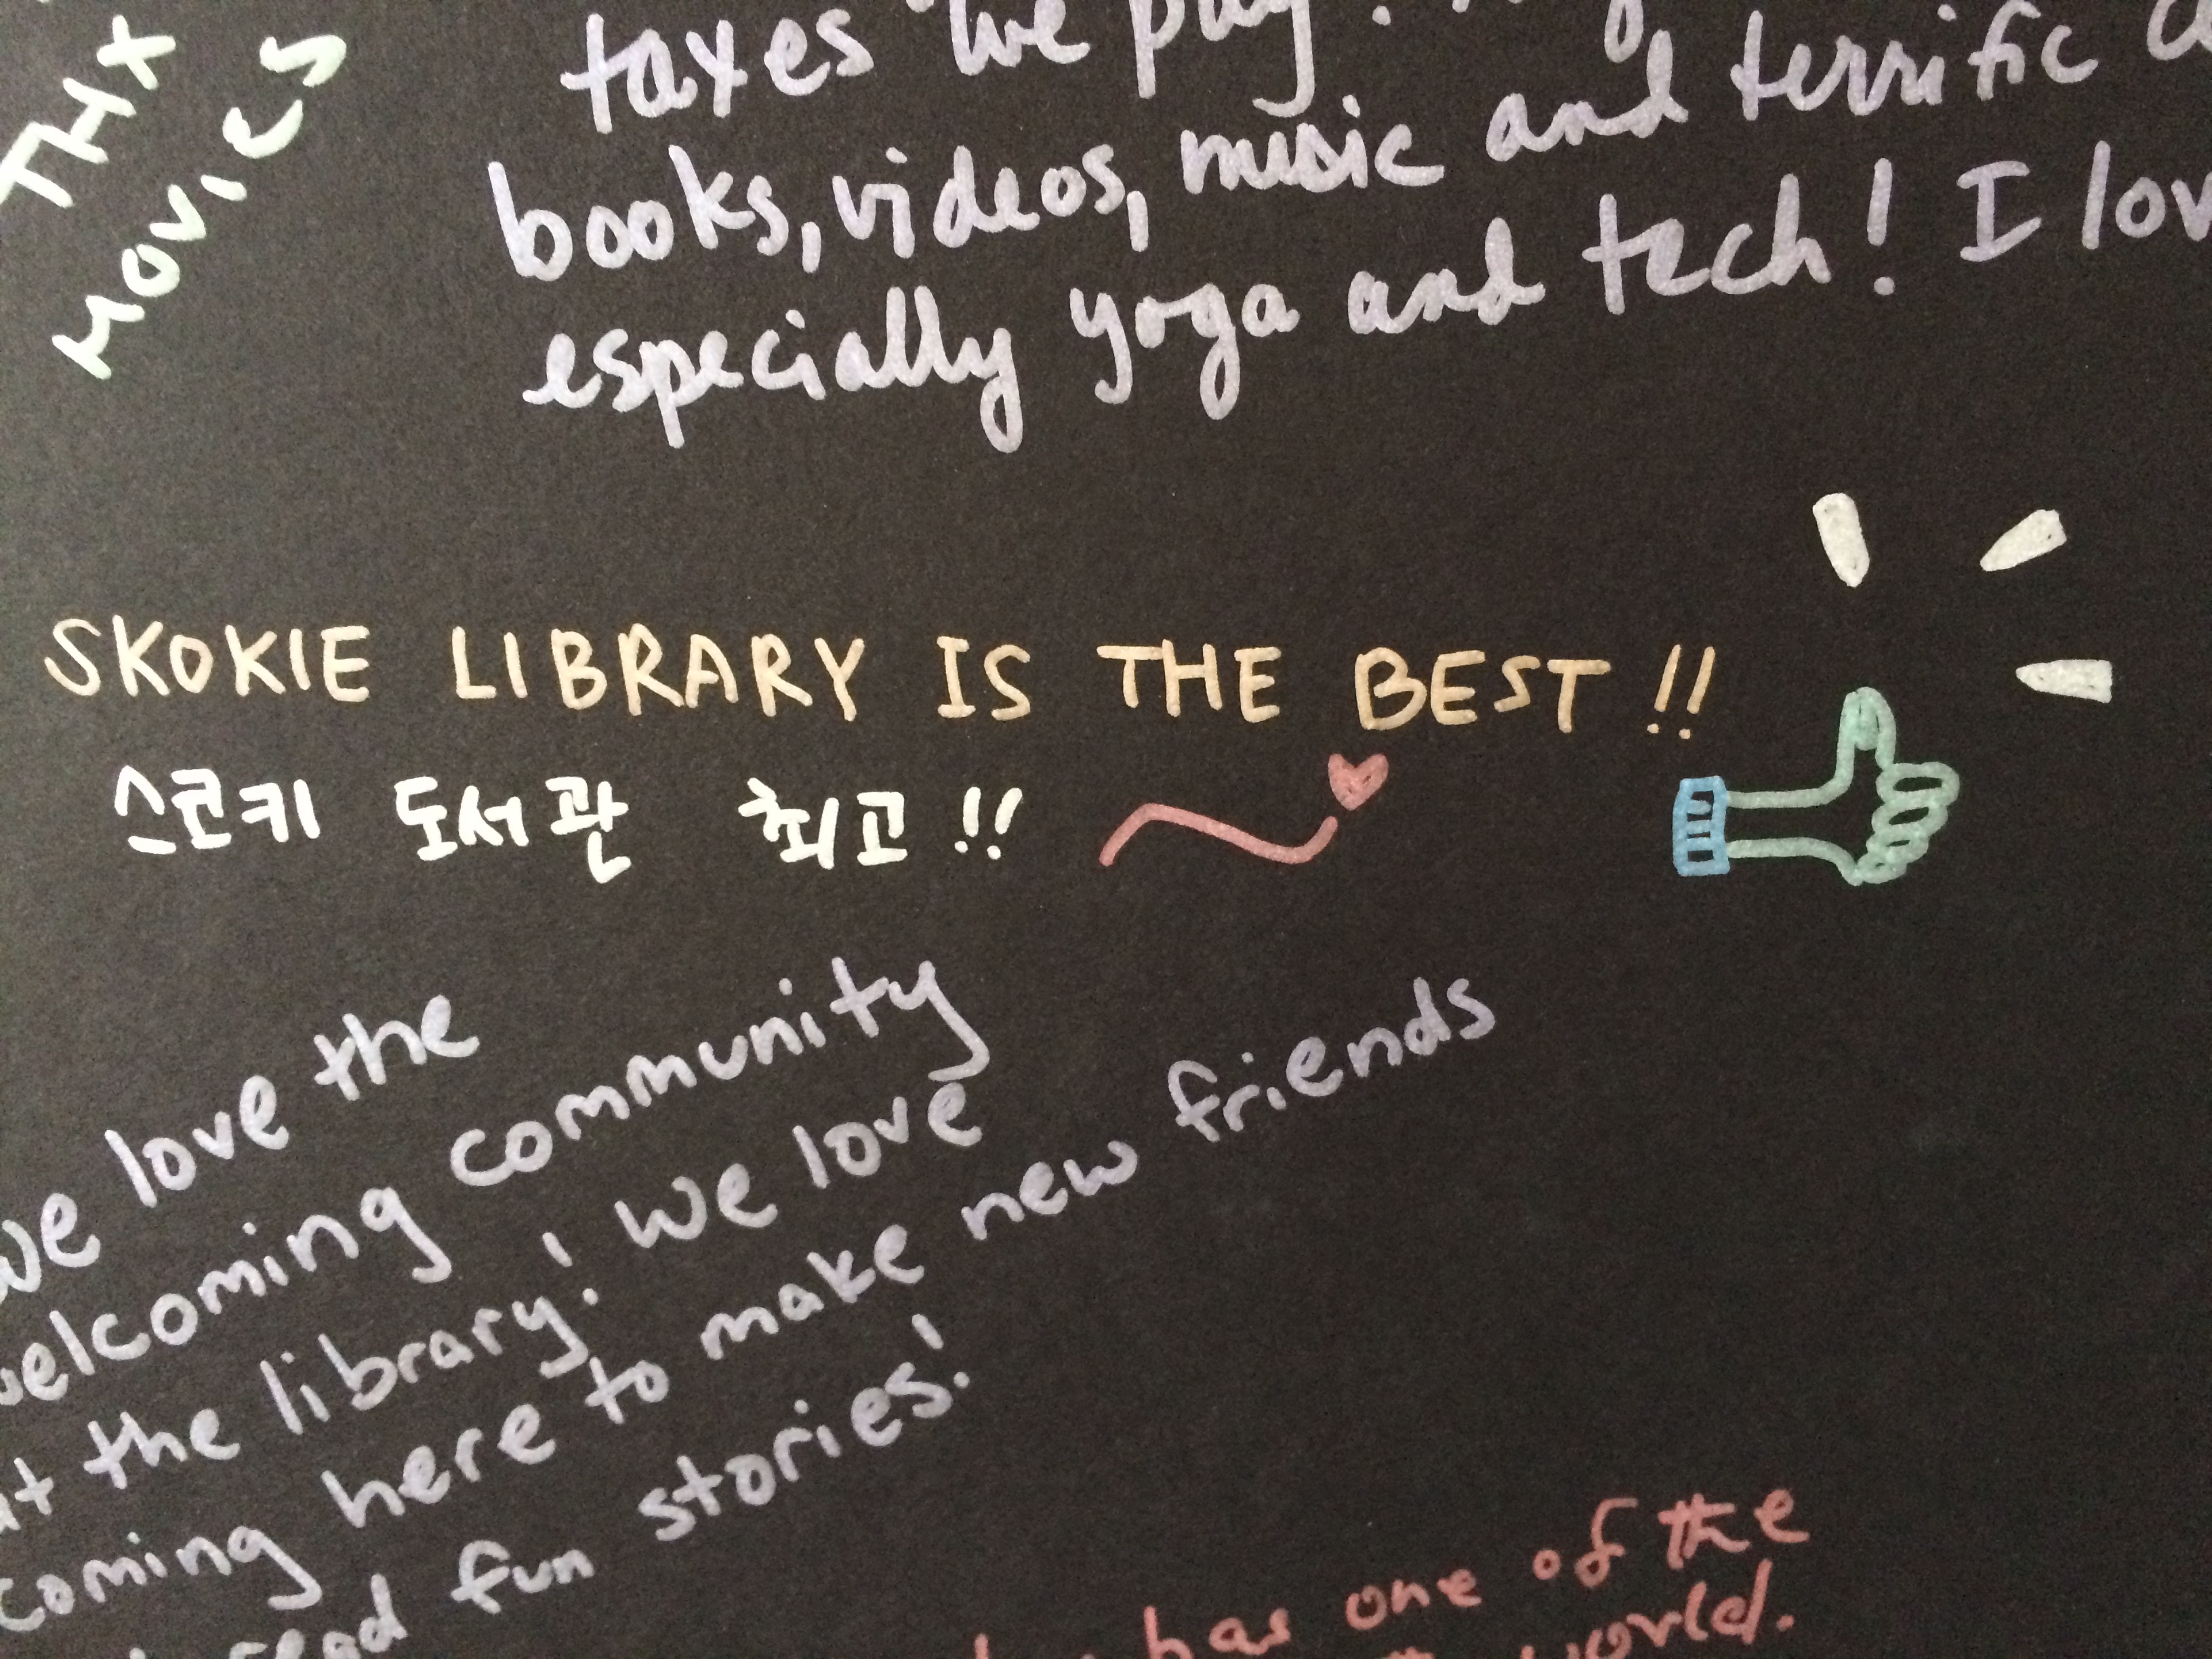 THX
MOVIES
taxes we pay!
books, videos, music and terrific
especially yoga and tech! I lov
SKOKIE LIBRARY IS THE BEST !!
스코키 도서관 최고 !!
we love the
welcoming community
at the library! We love
coming here to make new friends
read fun stories!
has one of the
world.